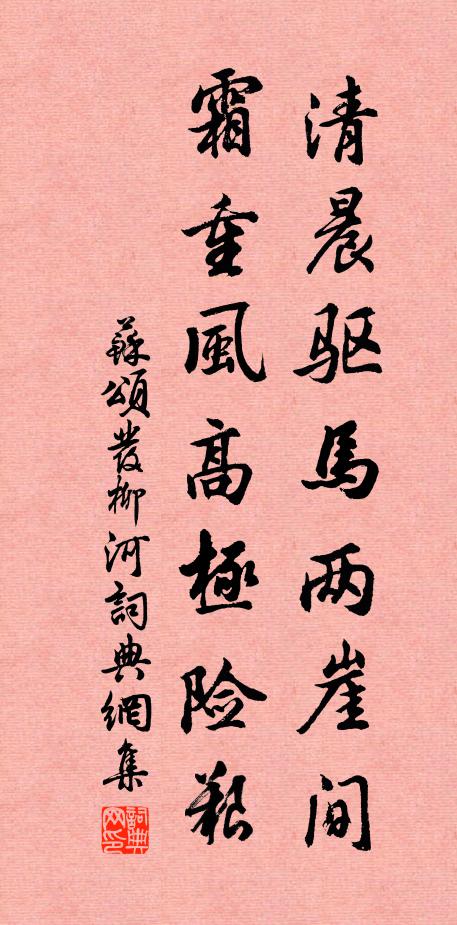 清晨驱馬两崖间
霜重風高極险艱
蘇頌發柳河詞典網集
詞典网印